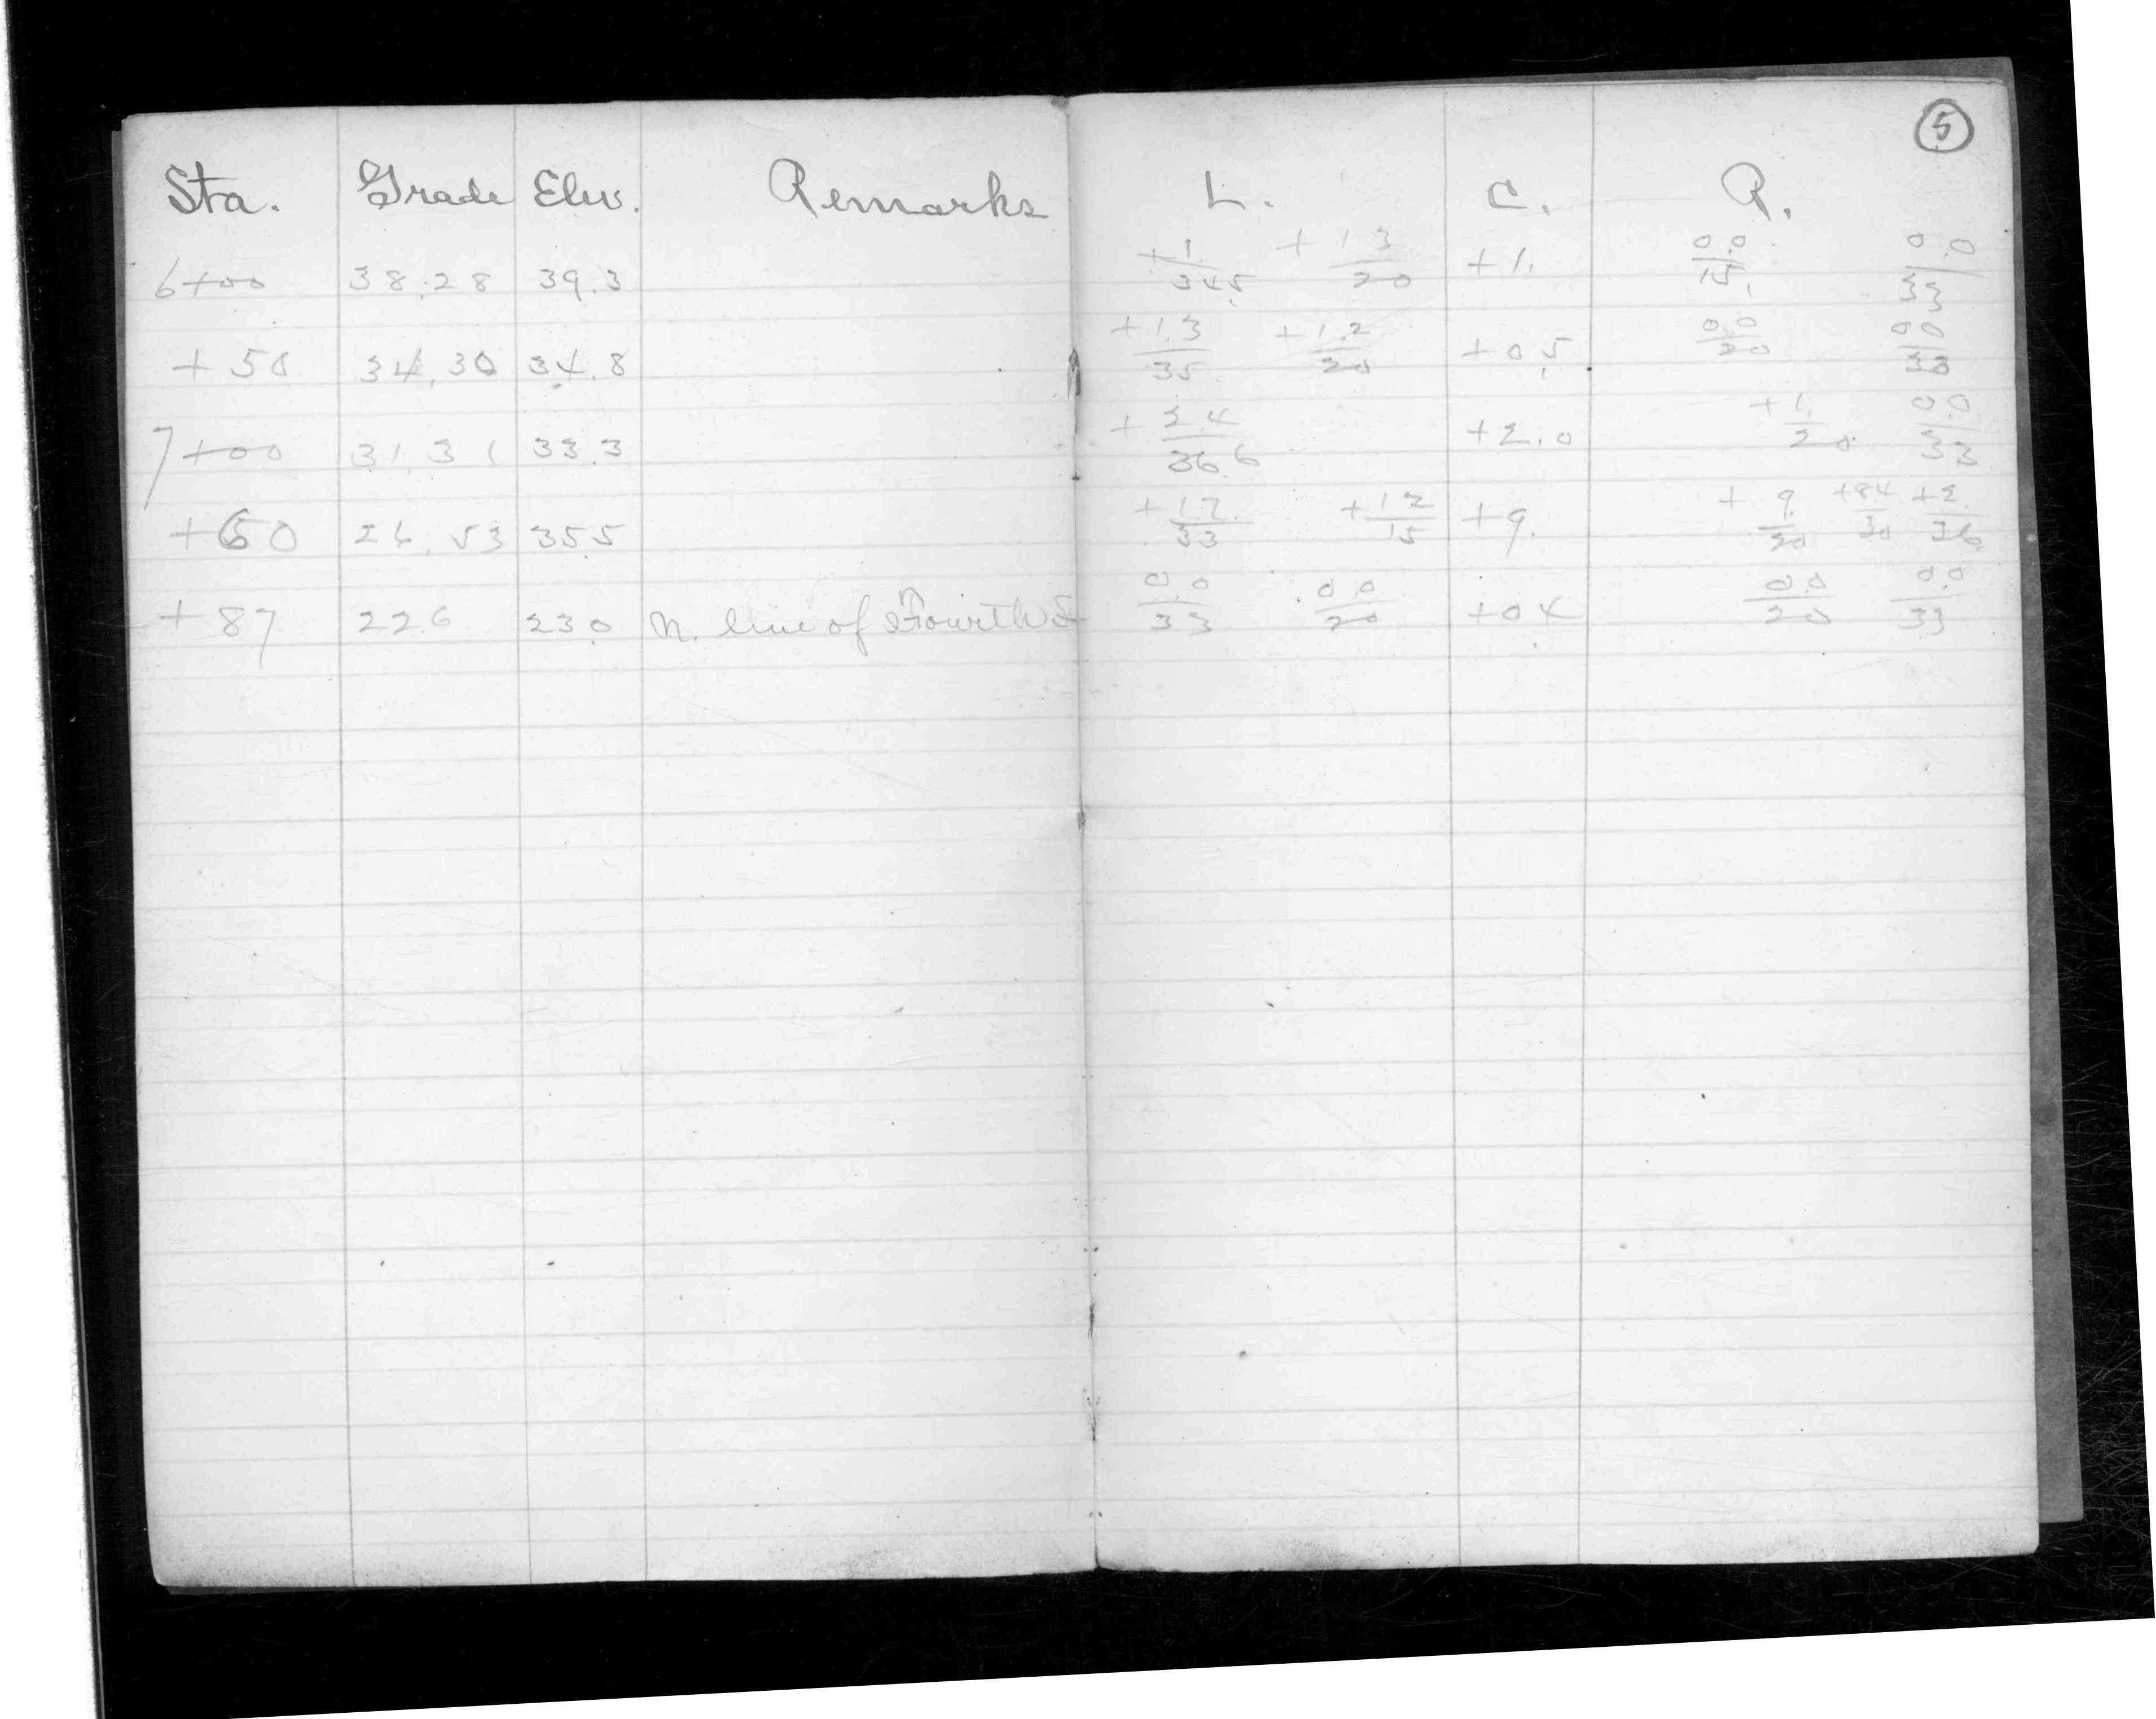 5
Sta. Grade Elev. Remarks L. C. R.
6+00 38.28 39.3 +1./34.5 +1.3/20 +1. 0.0/15. 0.0/33
+50 34.30 34.8 +1.3/35 +1.2/20 +0.5 0.0/20 0.0/33
7+00 31.31 33.3 +2.4/36.6 +2.0 +1./20 0.0/33
+60 26.53 35.5 +12./33 +12/15 +9. +9./20 +8.4/30 +2./36
+87 22.6 23.0 N. line of Fourth St 0.0/33 0.0/20 +0.4 0.0/20 0.0/33